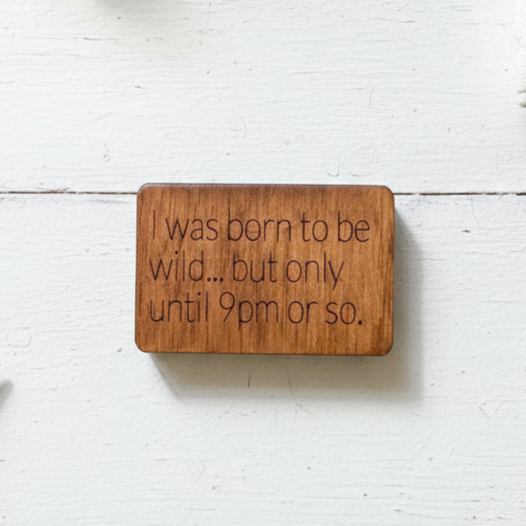 I was born to be
wild... but only
until 9pm or so.